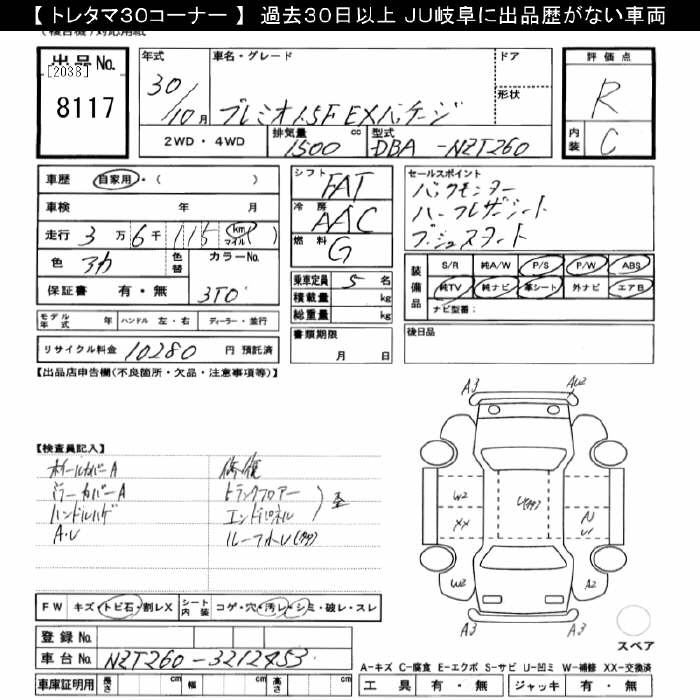 【 トレタマ30コーナー 】 過去30日以上 JU岐阜に出品歴がない車両
出品No.
[2038]
8117
年式
30/10月
車名・グレード
プレミオ1.5F EXパッケージ
ドア
形状
2WD・4WD
排気量
1500 cc
型式
DBA-NZT260
評価点
R
内装
C
車歴 自家用・( )
車検 年 月
走行 3万6千115 km マイル( )
色 アカ 色替 カラーNo.
保証書 有・無 3T0
モデル年式 年 ハンドル 左・右 ディーラー・並行
リサイクル料金 10280 円 預託済
シフト
FAT
冷房
AAC
燃料
G
乗車定員 5 名
積載量 kg
総重量 kg
書類期限
月 日
セールスポイント
バックモニター
ハーフレザーシート
プッシュスタート
装備品
S/R 純A/W P/S P/W ABS
純TV 純ナビ 革シート 外ナビ エアB
ナビ型番:
後日品
【出品店申告欄(不良箇所・欠品・注意事項等)】
【検査員記入】
ホイールカバーA
ミラーカバーA
ハンドルハゲ
A・U
修復
トランクフロアー
エンドパネル
ルーフ
A3
AU2
W2
XX
U
A2
W2
A3
A3
スペア
FW キズ・トビ石・割レX シート内装 コゲ・穴・汚レ・シミ・破レ・スレ
登録No.
車台No. NZT260-3212453
車庫証明用 長さ cm 幅 cm 高さ cm
A-キズ C-腐食 E-エクボ S-サビ U-凹ミ W-補修 XX-交換済
工具 有・無 ジャッキ 有・無